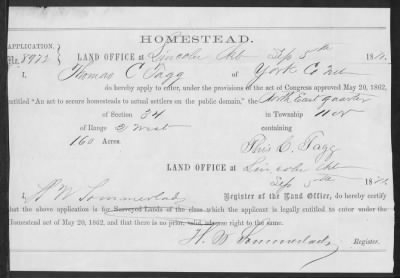 HOMESTEAD.
APPLICATION.
No. 8972
LAND OFFICE at Lincoln Neb Sep 5th 187
I, Thomas C Tagg of York Co Neb
do hereby apply to enter, under the provisions of the act of Congress approved May 20, 1862,
entitled "An act to secure homesteads to actual settlers on the public domain," the North East quarter
of Section 34 in Township 11 N
of Range 2 West containing
160 Acres.
Thos C. Tagg
LAND OFFICE at Lincoln Neb
Sep 5th 187
I, H W Sommerlad, Register of the Land Office, do hereby certify
that the above application is for Surveyed Lands of the class which the applicant is legally entitled to enter under the
Homestead act of May 20, 1862, and that there is no prior, valid, adverse right to the same.
H. W Sommerlad, Register.